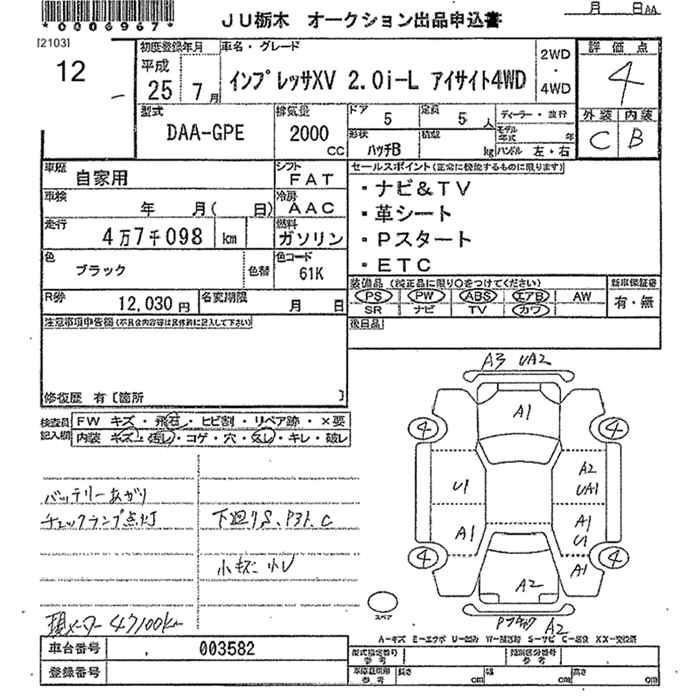 *0006967*
JU栃木 オークション出品申込書
月 日AA
[2103]
12
初度登録年月
平成
25 7月
車名・グレード
インプレッサXV 2.0i-L アイサイト4WD
2WD
・
4WD
評価点
4
外装 内装
C B
型式
DAA-GPE
排気量
2000
CC
ドア
5
定員
5人
形状
ハッチB
積載
kg
ディーラー・並行
モデル年式 年
ハンドル 左・右
車歴
自家用
シフト
FAT
車検
年 月( 日)
冷房
AAC
走行
4万7千098 km
燃料
ガソリン
色
ブラック
色替
色コード
61K
R券
12,030円
名変期限
月 日
セールスポイント(正常に機能するものに限ります)
・ナビ&TV
・革シート
・Pスタート
・ETC
装備品 (純正品に限り○をつけてください)
PS PW ABS エアB AW
SR ナビ TV カワ
新車保証書
有・無
後日品
注意事項申告欄(不具合内容等は具体的に記入して下さい)
修復歴 有 [箇所 ]
検査員記入欄
FW キズ・飛石・ヒビ割・リペア跡・×要
内装 キズ・汚レ・コゲ・穴・スレ・キレ・破レ
バッテリーあがり
チェックランプ点灯
下廻りS、P3ト、C
小キズ 小U
現メーター 47100km
A3 UA2
A1
4
4
U1
A2
UA1
A1
A1
U1
4
4
A1
A2
スペア
A2
A-キズ E-エクボ U-凹み W-補修跡 S-サビ C-腐食 XX-交換済
車台番号
003582
登録番号
型式指定番号
参考
類別区分番号
参考
車庫証明用
参考
長さ cm
幅 cm
高さ cm